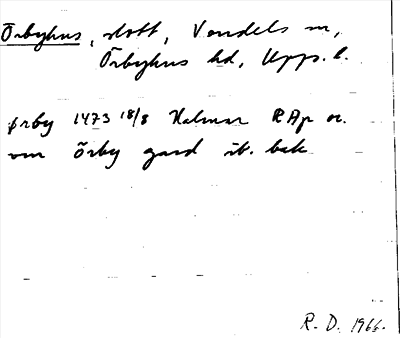 Örbyhus, slott, Vendels sn,
Örbyhus hd, Upps. l.
ørby 1473 18/8 Kalmar RAp or.
om Örby gard st. bak
R. D. 1966.